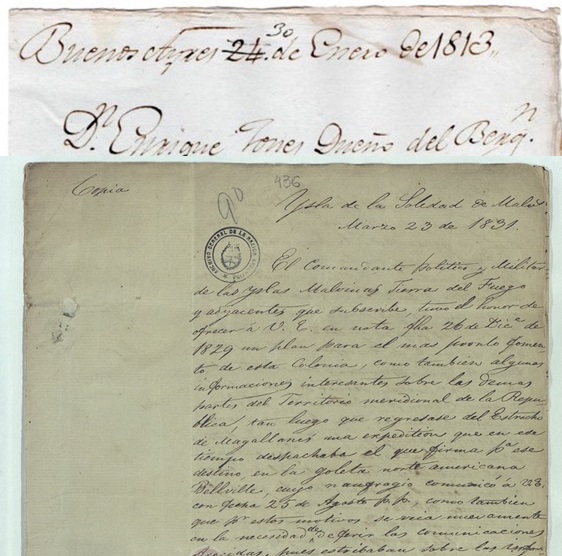 Buenos Ayres 24 30 de Enero de 1813,,
Dn. Enrique Jones Dueño del Bergn.
Copia
9º
436
Ysla de la Soledad de Malvs.
Marzo 23 de 1831.
ARCHIVO GENERAL DE LA NACION
El Comandante politico y Militar
de las Yslas Malvinas Tierra del Fuego
y adyacentes que subscribe, tuvo el honor de
ofrecer á V. E. en nota fha 26 de Dice. de
1829 un plan para el mas pronto fomen-
to de esta Colonia, como tambien algunas
informaciones interesantes sobre las demas
partes del Territorio meridional de la Repu-
blica, tan luego que regresase del Estrecho
de Magallanes una expedition que en ese
tiempo despachaba el que firma pa. ese
destino en la goleta norte americana
Bellville, cuyo naufragio comunicó á V.E.
con fecha 25 de Agosto p.p. como tambien
que pr. estos motivos se veia nuevamente
en la necesidad de las comunicaciones
pues estribaban sobre los